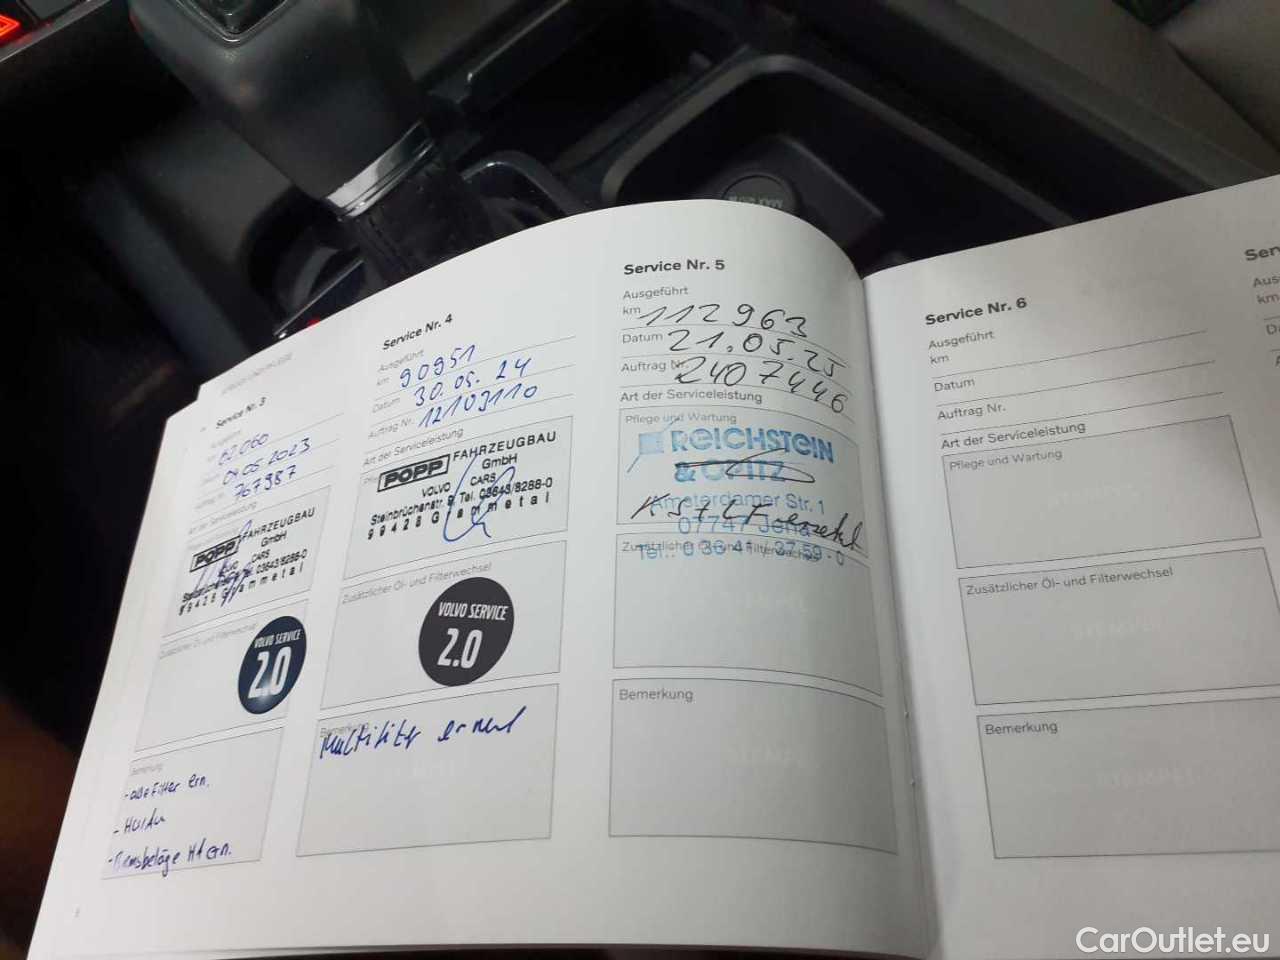 Service Nr. 3
Ausgeführt
62060
04.05.2023
767987
Art der Serviceleistung
POPP FAHRZEUGBAU
GmbH
VOLVO CARS
Steinbrüchenstr. Tel. 03643/8288-0
99428 Grammetal
Zusätzlicher Öl- und Filterwechsel
VOLVO SERVICE
2.0
Bemerkung
- alle Filter ern.
- HU/AU
- Bremsbeläge HA ern.
Service Nr. 4
Ausgeführt
km 90951
Datum 30.05.24
Auftrag Nr. 12103110
Art der Serviceleistung
POPP FAHRZEUGBAU
GmbH
VOLVO CARS
Steinbrüchenstr. Tel. 03643/8288-0
99428 Grammetal
Zusätzlicher Öl- und Filterwechsel
VOLVO SERVICE
2.0
Bemerkung
Service Nr. 5
Ausgeführt
km 112963
Datum 21.05.25
Auftrag Nr. 2407446
Art der Serviceleistung
Pflege und Wartung
REICHSTEIN
& OPITZ
Amsterdamer Str. 1
07747 Jena
Zusätzlicher Öl- und Filterwechsel
Tel.: 0 36 41 / 37 59 - 0
Bemerkung
Service Nr. 6
Ausgeführt
km
Datum
Auftrag Nr.
Art der Serviceleistung
Pflege und Wartung
Zusätzlicher Öl- und Filterwechsel
Bemerkung
CarOutlet.eu